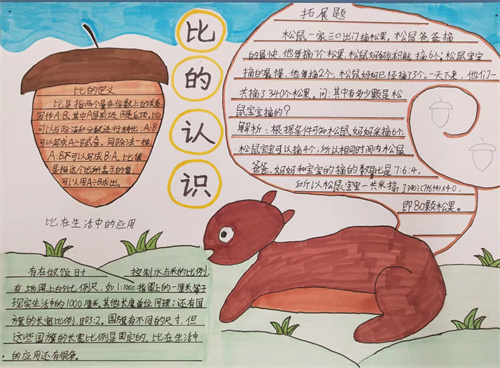 比的认识
比的定义
比是指两个量之倍数上的关系
写作A:B,其中A是前项,B是后项,比
可以与除法和分数进行转化,A:B
可以写成A÷B或
A:B不可以写成B:A,比值
可以用A÷B求出。
拓展题
松鼠一家三口出门摘松果,松鼠爸爸摘
的最快,他每摘7个松果,松鼠妈妈就只能摘6个;松鼠宝宝
摘的最慢,他每摘2个,松鼠妈妈已经摘了3个,一天下来,他们一
共摘了340个松果。问:其中有多少颗是松
鼠宝宝摘的?
解析:根据条件可知松鼠妈妈每摘6个
松鼠宝宝可以摘4个,所以相同时间内松鼠
爸爸、妈妈和宝宝的摘的数量比是7:6:4。
所以松鼠宝宝一共采摘340÷(7+6+4)×4。
即80颗松果。
比在生活中的应用
有在做饭时 控制水与米的比例,
有地图上的比例尺,如1:1000指图上的一厘米等于
现实生活中的1000厘米,其他长度单位同理;还有国
旗的长宽比例,即3:2,国旗有不同的尺寸,但
这些国旗的长宽比例是固定的,比在生活中
的应用还有很多。